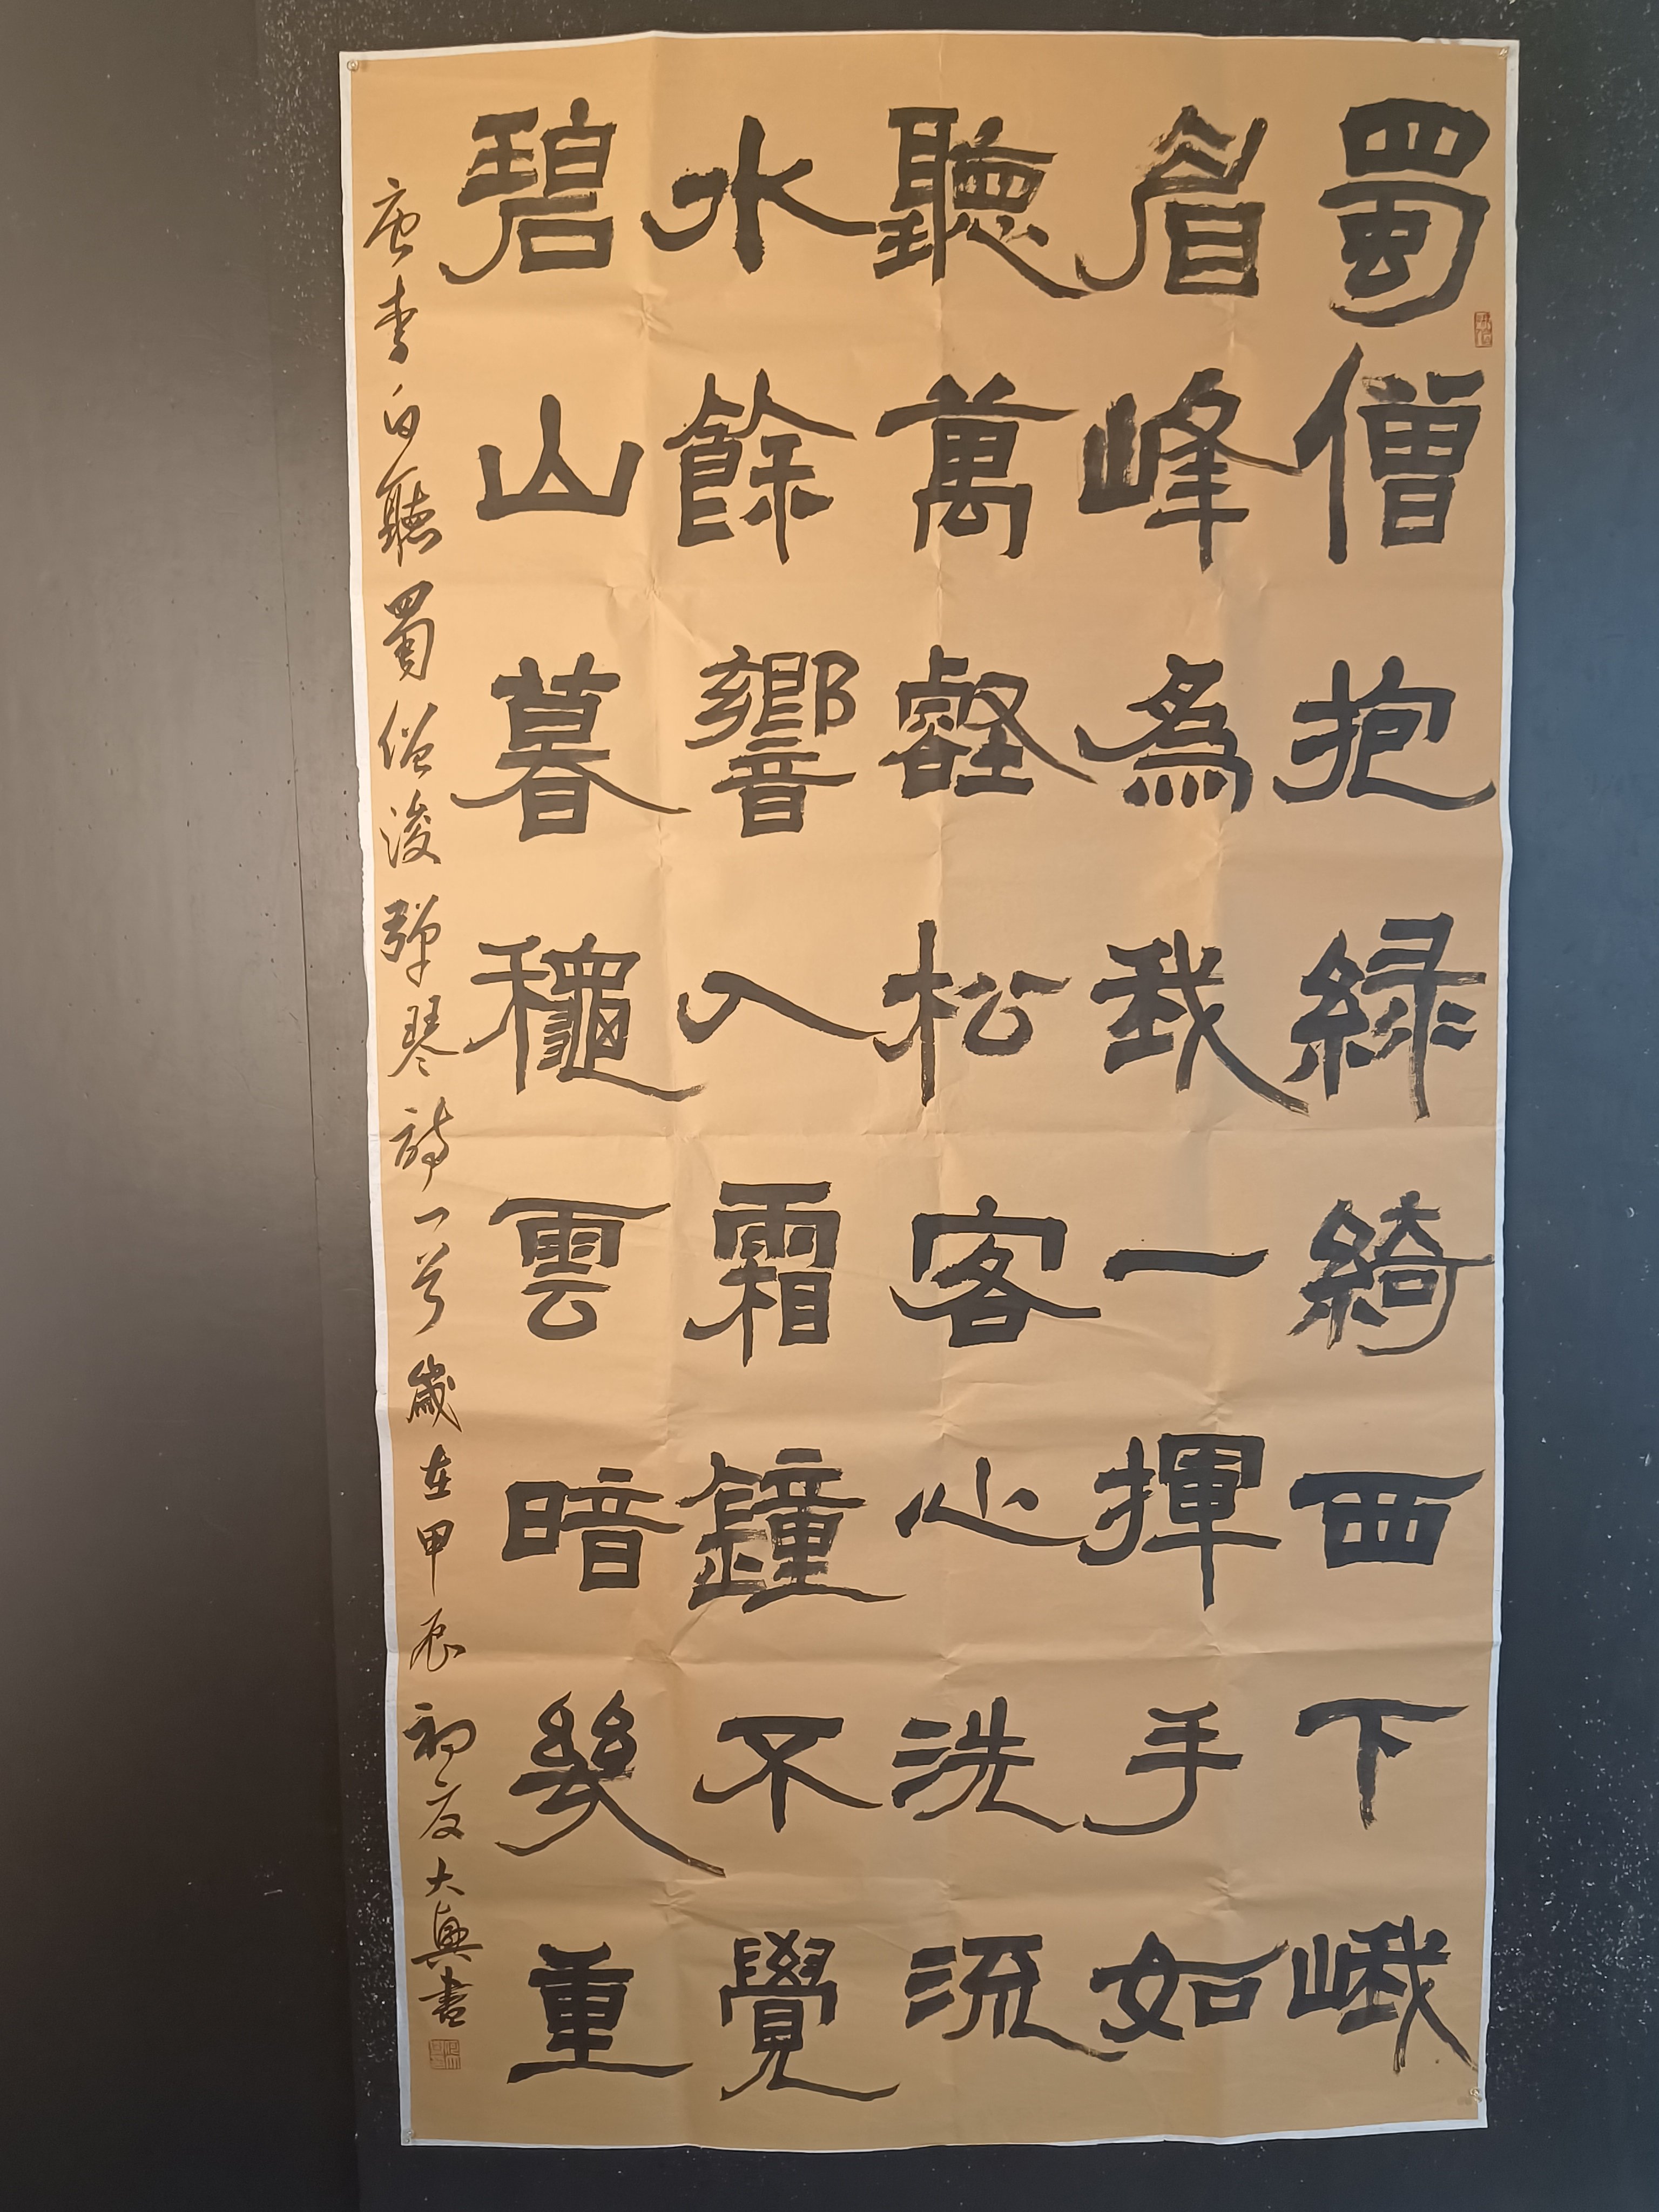 蜀僧抱綠綺西下峨
眉峰為我一揮手如
聽萬壑松客心洗流
水餘響入霜鐘不覺
碧山暮穐雲暗幾重
唐李白聽蜀僧浚彈琴詩一首歲在甲辰初夏大興書